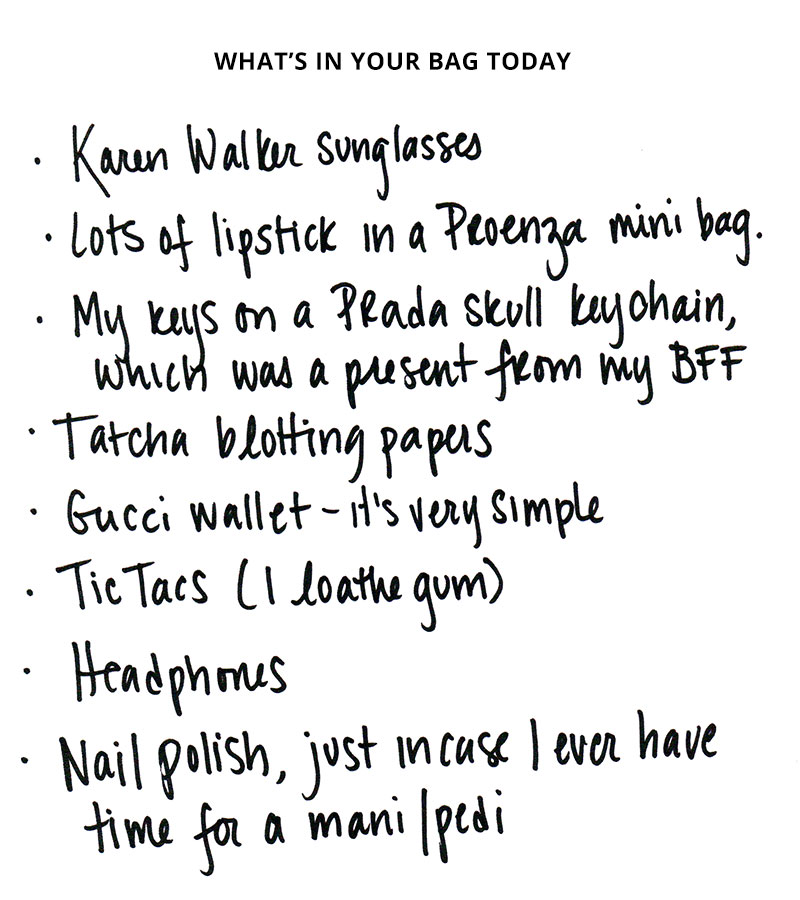 WHAT'S IN YOUR BAG TODAY
· Karen Walker sunglasses
· Lots of lipstick in a Proenza mini bag.
· My keys on a Prada skull keychain,
which was a present from my BFF
· Tatcha blotting papers
· Gucci wallet - it's very simple
· Tic Tacs (I loathe gum)
· Headphones
· Nail polish, just in case I ever have
time for a mani/pedi